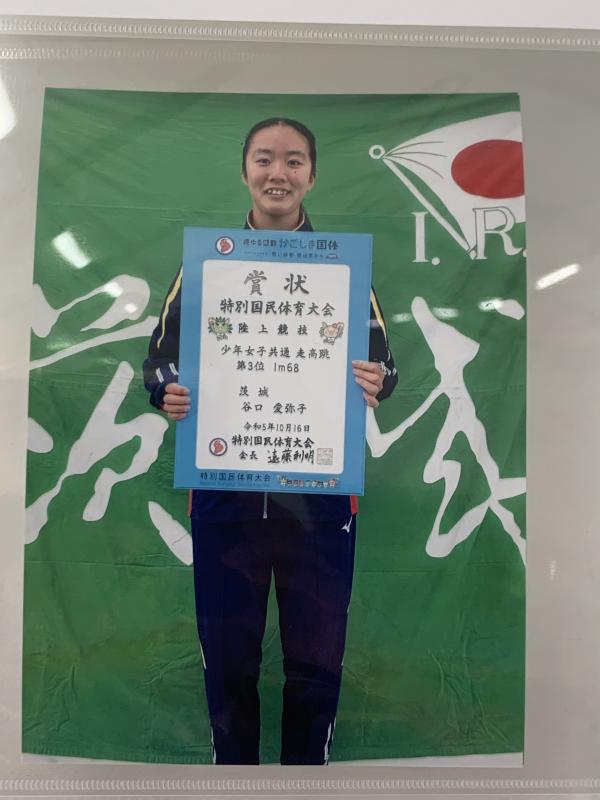 I.R.
茨城
燃ゆる感動 かごしま国体
賞状
特別国民体育大会
陸上競技
少年女子共通 走高跳
第3位 1m68
茨城
谷口 愛弥子
令和5年10月16日
特別国民体育大会
会長 遠藤利明
特別国民体育大会